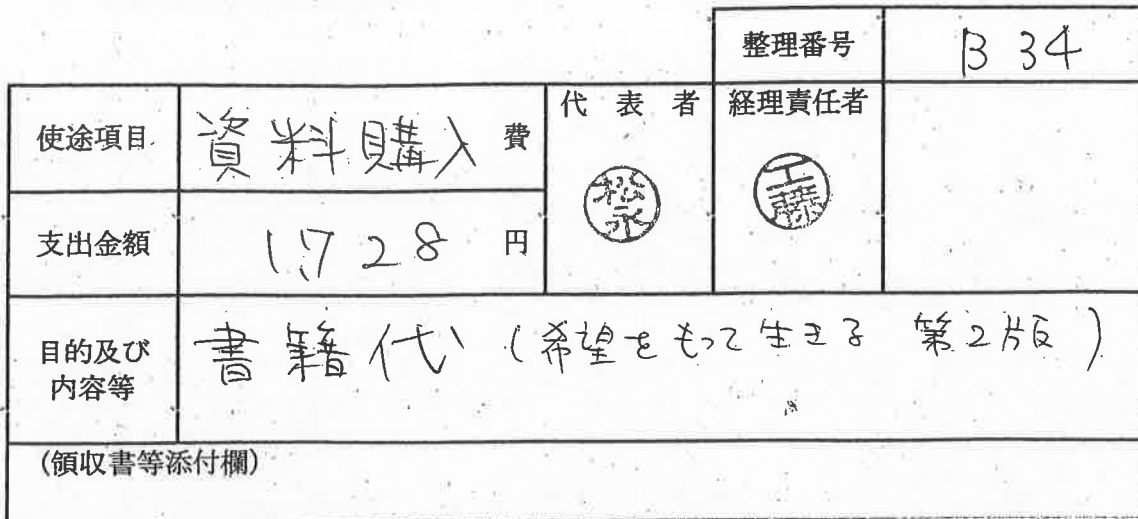 整理番号 B 34
使途項目 資料購入費 代表者 経理責任者
松永 工藤
支出金額 1,728 円
目的及び内容等 書籍代(希望をもって生きる 第2版)
(領収書等添付欄)